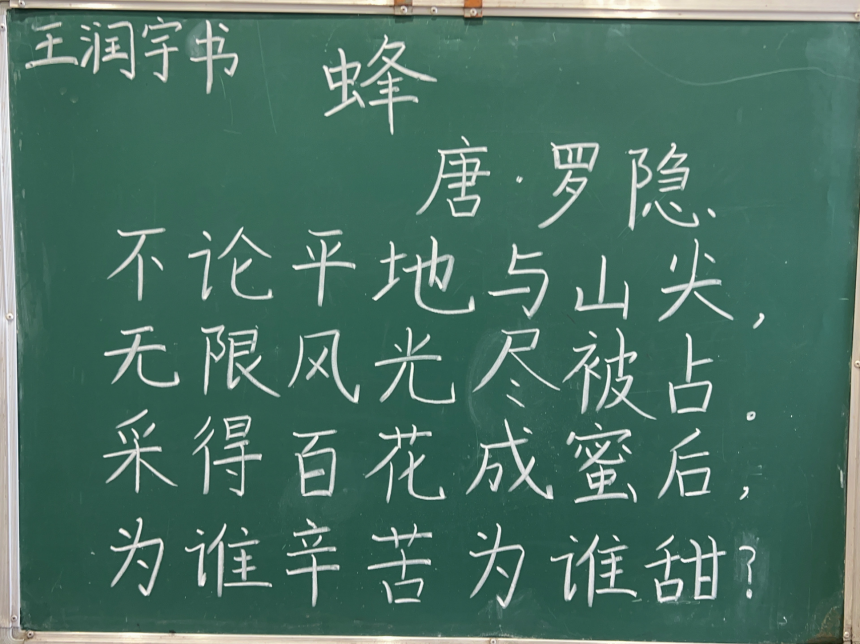 王润宇书
蜂
唐·罗隐
不论平地与山尖，
无限风光尽被占。
采得百花成蜜后，
为谁辛苦为谁甜？